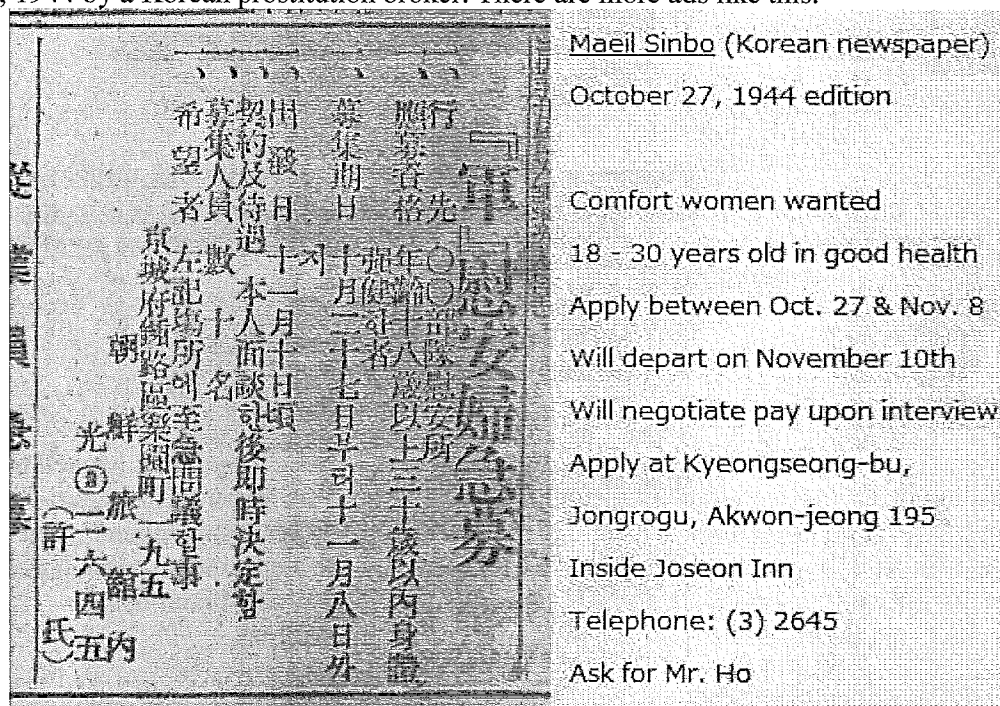 by a Korean prostitution broker. There are more ads like this.
『軍』慰安婦急募
一、行 先 ○○部隊慰安所
一、應募資格 年齡十八歲以上三十歲以內身體
强健한者
一、募集期日 十月二十七日부터十一月八日外
지
一、出發日 十一月十日頃
一、契約及待遇 本人面談한後即時決定함
一、募集人員 數十名
一、希望者 左記場所에至急問議할事
京城府鍾路區樂園町一九五
朝鮮旅館內
光③二六四五
(許 氏)
Maeil Sinbo (Korean newspaper)
October 27, 1944 edition
Comfort women wanted
18 - 30 years old in good health
Apply between Oct. 27 & Nov. 8
Will depart on November 10th
Will negotiate pay upon interview
Apply at Kyeongseong-bu,
Jongrogu, Akwon-jeong 195
Inside Joseon Inn
Telephone: (3) 2645
Ask for Mr. Ho